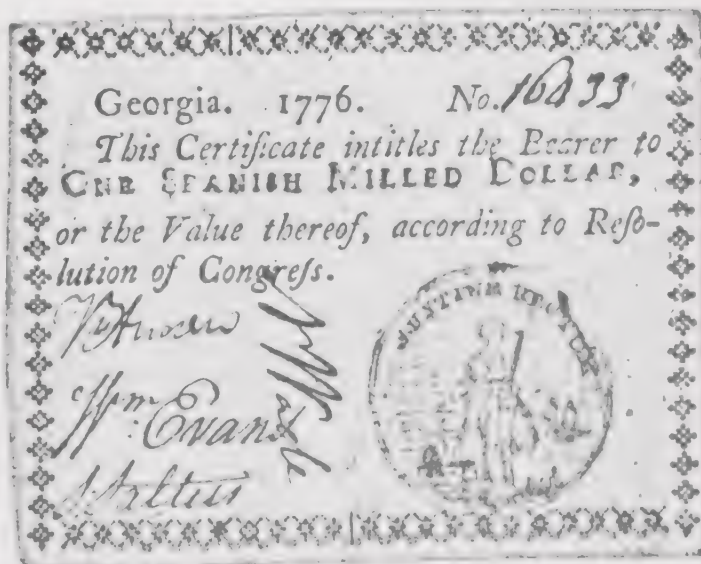 Georgia. 1776. No.
This Certificate intitles the Bearer to
ONE SPANISH MILLED DOLLAR,
or the Value thereof, according to Reſo-
lution of Congreſs.
SUSTINE RECTUM
Wm: Evans